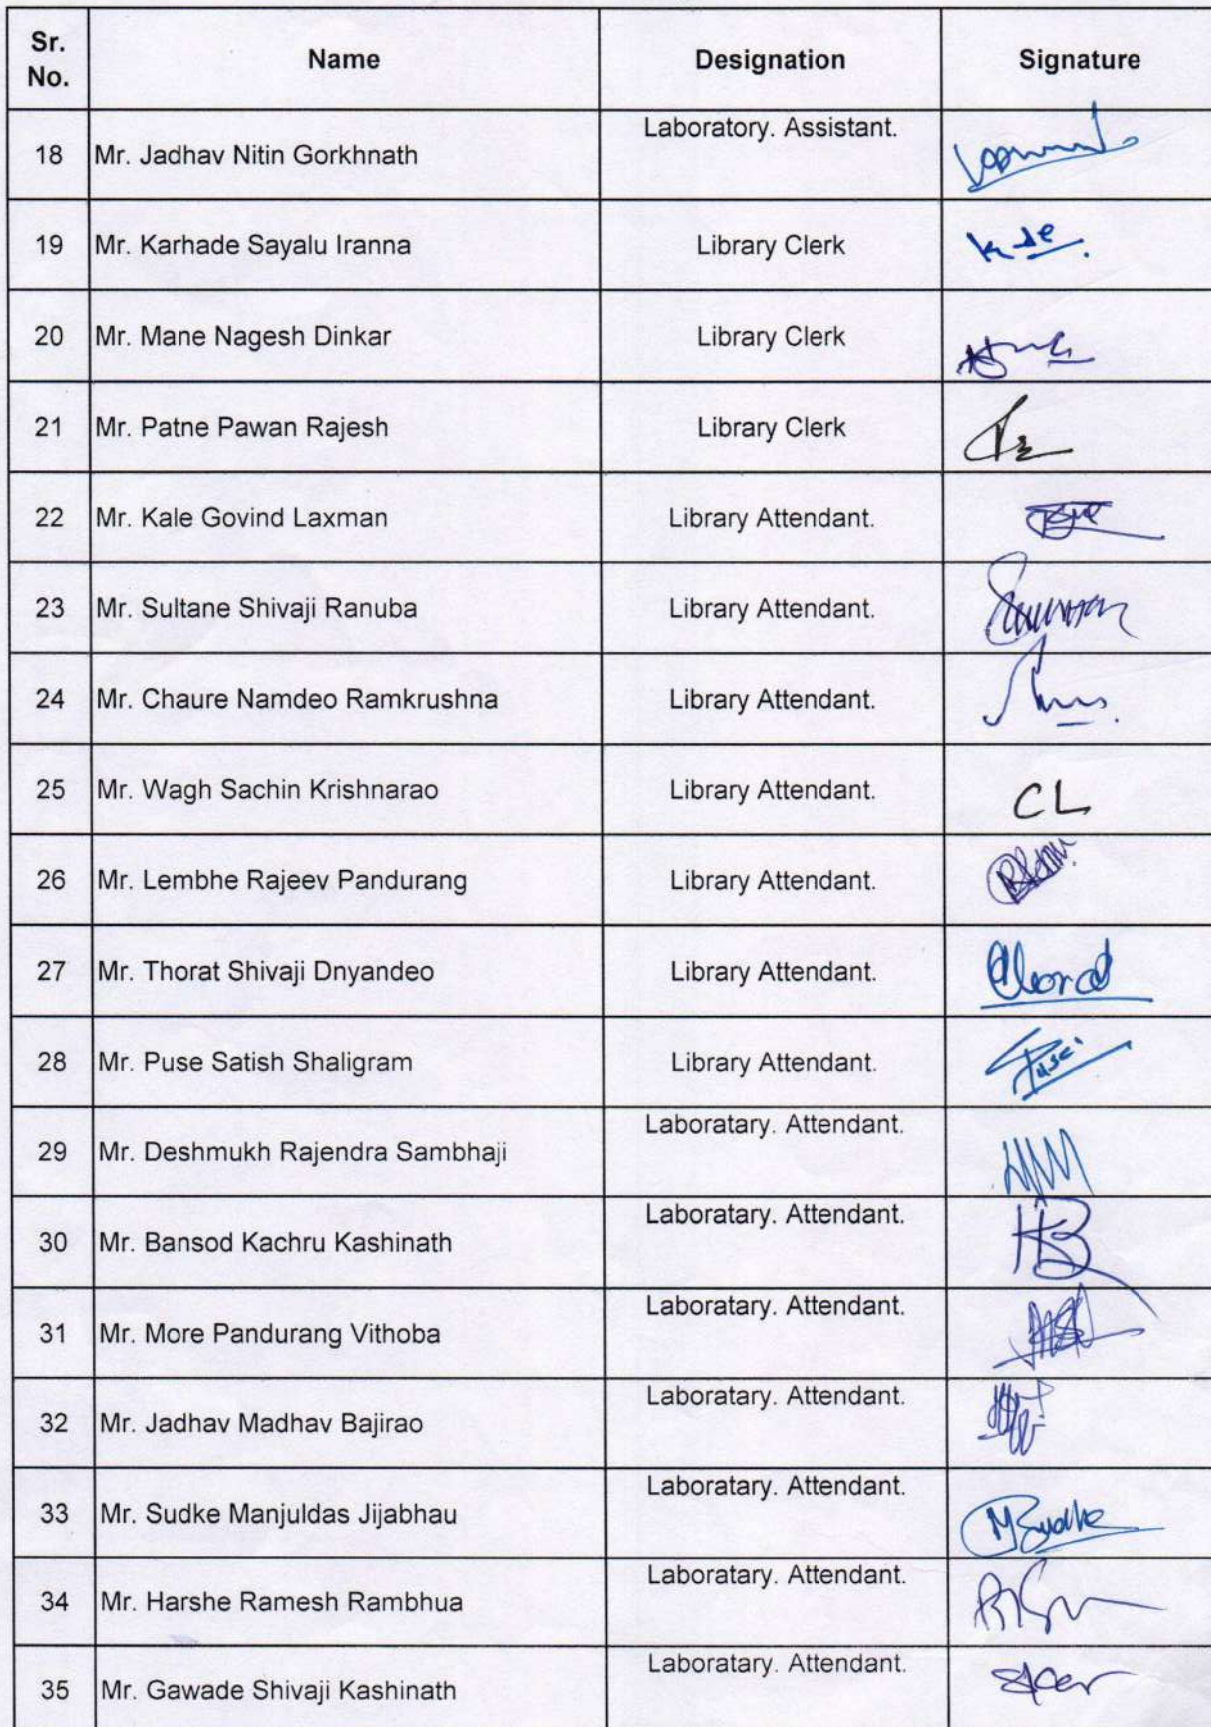 Sr. No. Name Designation Signature
18 Mr. Jadhav Nitin Gorkhnath Laboratory. Assistant.
19 Mr. Karhade Sayalu Iranna Library Clerk
20 Mr. Mane Nagesh Dinkar Library Clerk
21 Mr. Patne Pawan Rajesh Library Clerk
22 Mr. Kale Govind Laxman Library Attendant.
23 Mr. Sultane Shivaji Ranuba Library Attendant.
24 Mr. Chaure Namdeo Ramkrushna Library Attendant.
25 Mr. Wagh Sachin Krishnarao Library Attendant. CL
26 Mr. Lembhe Rajeev Pandurang Library Attendant.
27 Mr. Thorat Shivaji Dnyandeo Library Attendant.
28 Mr. Puse Satish Shaligram Library Attendant.
29 Mr. Deshmukh Rajendra Sambhaji Laboratary. Attendant.
30 Mr. Bansod Kachru Kashinath Laboratary. Attendant.
31 Mr. More Pandurang Vithoba Laboratary. Attendant.
32 Mr. Jadhav Madhav Bajirao Laboratary. Attendant.
33 Mr. Sudke Manjuldas Jijabhau Laboratary. Attendant. MSudke
34 Mr. Harshe Ramesh Rambhua Laboratary. Attendant.
35 Mr. Gawade Shivaji Kashinath Laboratary. Attendant.